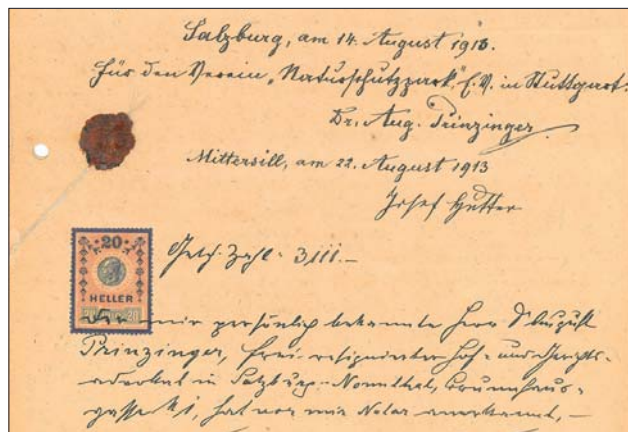 Salzburg, am 14. August 1913.
Für den Verein „Naturschutzpark“, E.V. in Stuttgart:
Dr. Aug. Prinzinger
Mittersill, am 22. August 1913
Josef Hutter
Gesch. Zahl: 3111.–
20
HELLER
20 20
Der mir persönlich bekannte Herr Dr August
Prinzinger, frei-resignierter Hof- und Gerichts-
advokat in Salzburg-Nonnthal,
gasse hat vor mir Notar anerkannt, –